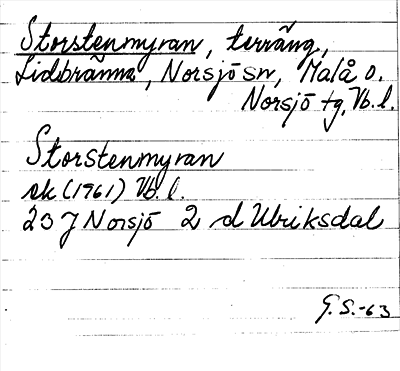 Storstenmyran, terräng,
Lidbränna, Norsjö sn, Malå o.
Norsjö tg, Vb. l.
Storstenmyran
ek (1961) Vb. l.
23 J Norsjö 2 d Ulriksdal
G. S. -63